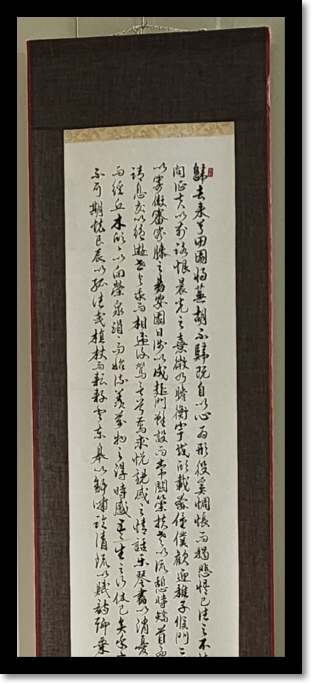 歸去来兮田園将蕪胡不歸既自以心為形役奚惆悵而獨悲悟已往之不
問征夫以前路恨晨光之熹微乃瞻衡宇載欣載奔僮僕歡迎稚子候門三
以寄傲審容膝之易安園日涉以成趣門雖設而常關策扶老以流憩時矯首而
請息交以絶遊世與我而相遺復駕言兮焉求悦親戚之情話樂琴書以消憂
而經丘木欣欣以向榮泉涓涓而始流羨萬物之得時感吾生之行休已矣乎
不可期懷良辰以孤往或植杖而耘耔登東皋以舒嘯臨清流以賦詩聊乘